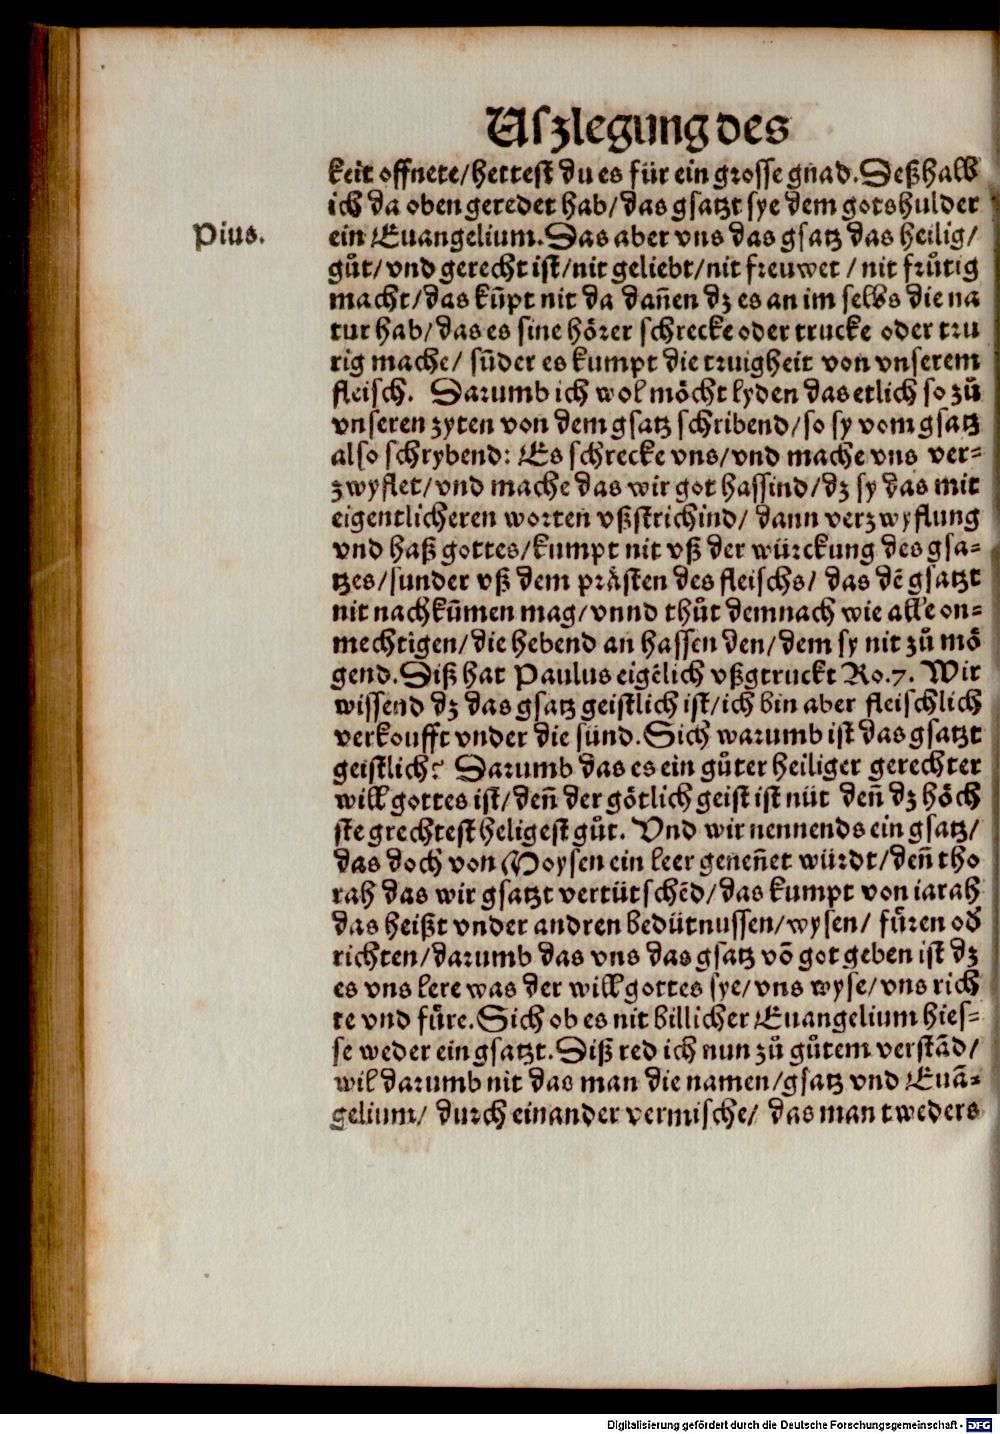 Uſzlegung des
keit offnete/hettest du es für ein grosse gnad. Deßhalb
ich da oben geredet hab/das gsatzt sye dem gotshulder
Pius.
ein Euangelium. Das aber vns das gsatz das heilig/
gůt/vnd gerecht ist/nit geliebt/nit freuwet / nit frůtig
macht/das kūpt nit da dañen dz es an im selbs die na
tur hab/das es sine hörer schrecke oder trucke oder tru
rig mache/ sūder es kumpt die truigheit von vnserem
fleisch. Darumb ich wol möcht lyden das etlich so zů
vnseren zyten von dem gsatz schribend/so sy vom gsatz
also schrybend: Es schrecke vns/vnd mache vns ver⸗
zwyflet/vnd mache das wir got hassind/dz sy das mit
eigentlicheren worten vßstrichind/ dann verzwyflung
vnd haß gottes/kumpt nit vß der würckung des gsa⸗
tzes/sunder vß dem prästen des fleischs/ das dē gsatzt
nit nachkūmen mag/vnnd thůt demnach wie alle on⸗
mechtigen/die hebend an hassen den/dem sy nit zů mö
gend. Diß hat Paulus eigēlich vßgtruckt Ro.7. Wir
wissend dz das gsatz geistlich ist/ich bin aber fleischlich
verkoufft vnder die sünd. Sich warumb ist das gsatzt
geistlich? Darumb das es ein gůter heiliger gerechter
will gottes ist/deñ der götlich geist ist nüt deñ dz höch
ste grechtest heligest gůt. Vnd wir nennends ein gsatz/
das doch von Moysen ein leer geneñet würdt/deñ tho
rah das wir gsatzt vertütschēd/das kumpt von iarah
das heißt vnder andren bedütnussen/wysen/ füren od̕
richten/darumb das vns das gsatz vō got geben ist dz
es vns lere was der will gottes sye/vns wyse/vns rich
te vnd füre. Sich ob es nit billicher Euangelium hies⸗
se weder ein gsatzt. Diß red ich nun zů gůtem verstād/
wil darumb nit das man die namen/gsatz vnd Euā⸗
gelium/ durch einander vermische/ das man tweders
Digitalisierung gefördert durch die Deutsche Forschungsgemeinschaft - DFG